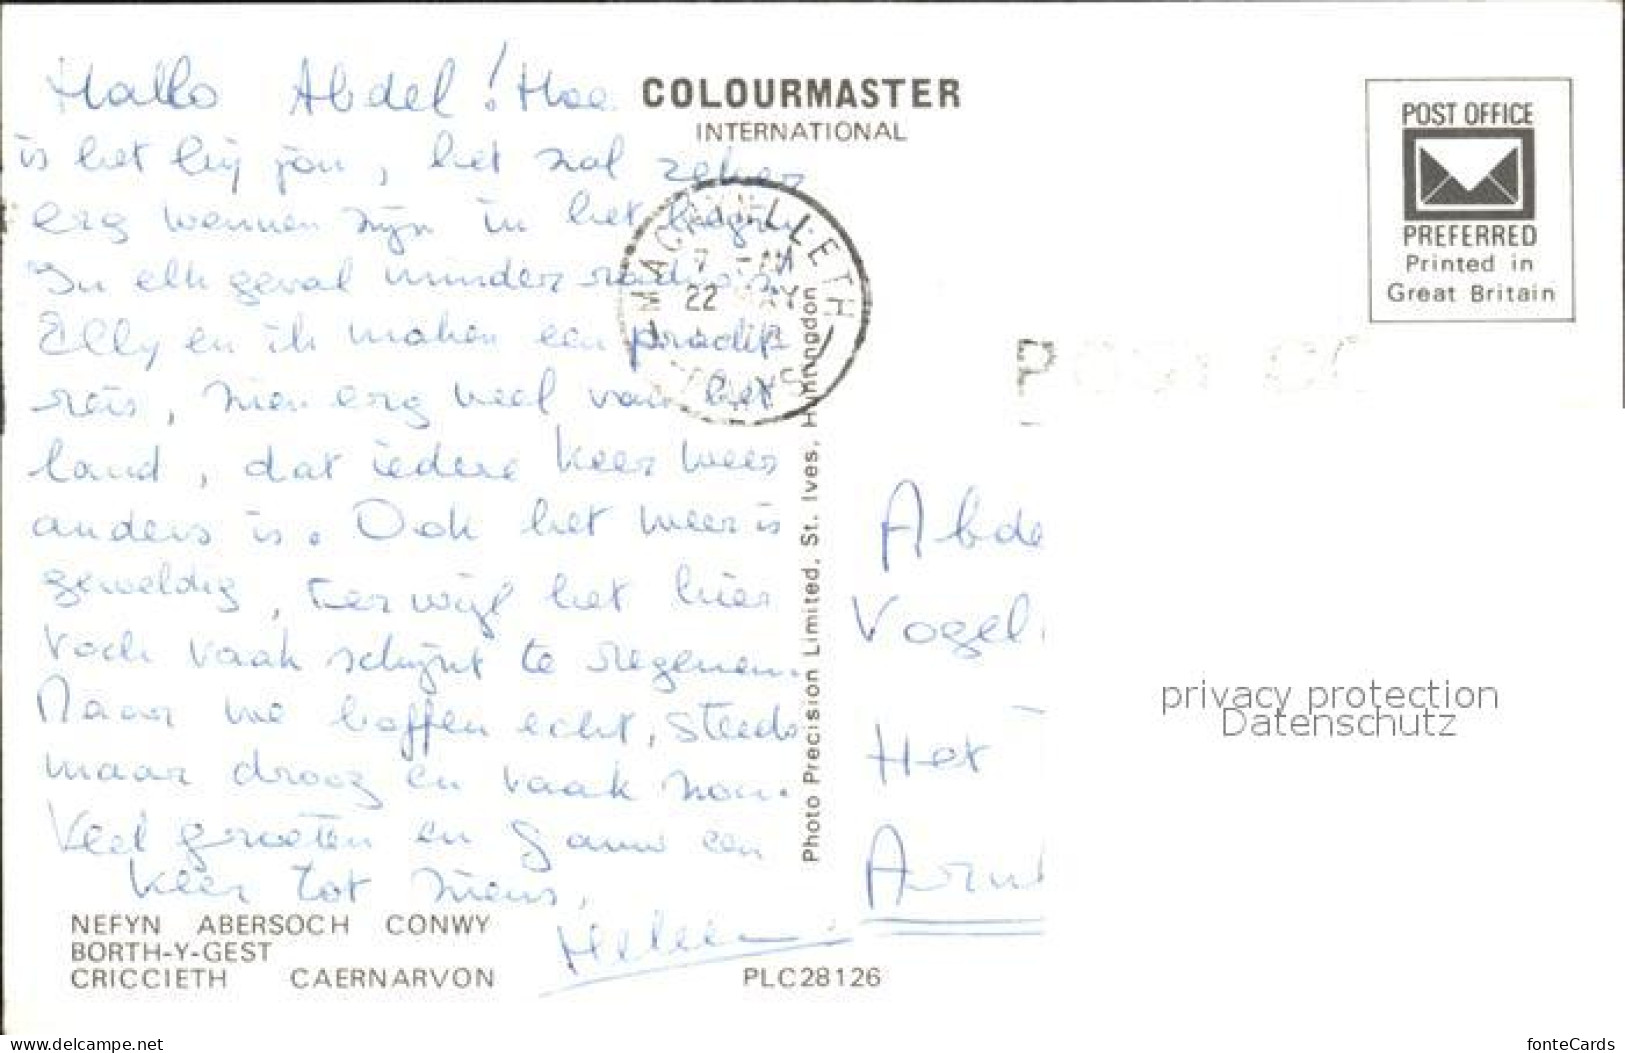 Hallo Abdel! Hoe
is het bij jou, het zal zeker
erg wennen zijn in het begin
In elk geval minder
Elly en ik maken een
reis, zien erg veel van het
land, dat iedere keer weer
anders is. Ook het weer is
geweldig, terwijl het hier
toch vaak schijnt te regenen.
Maar we boffen echt, steeds
maar droog en vaak zon.
Veel groeten en gauw een
keer tot ziens,
Heleen
NEFYN ABERSOCH CONWY
BORTH-Y-GEST
CRICCIETH CAERNARVON
PLC28126
COLOURMASTER
INTERNATIONAL
7 - AM
22
Photo Precision Limited, St. Ives, Huntingdon
POST OFFICE
PREFERRED
Printed in
Great Britain
Abde
Vogel
Het
privacy protection
Datenschutz
www.delcampe.net
fonteCards